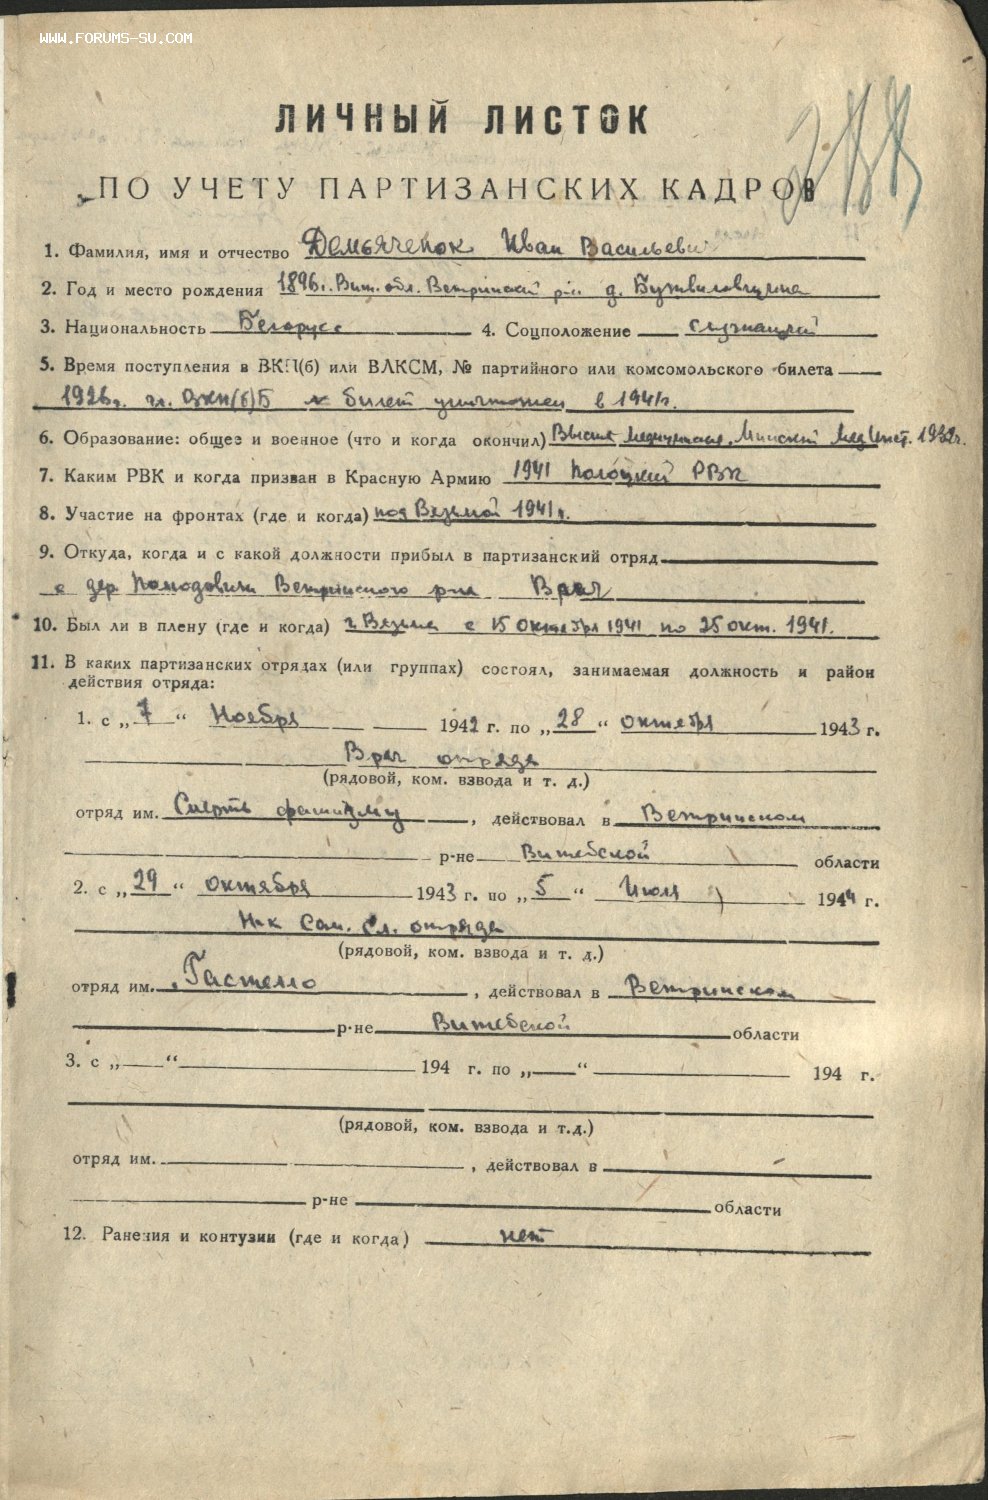 WWW.FORUMS-SU.COM
ЛИЧНЫЙ ЛИСТОК
ПО УЧЕТУ ПАРТИЗАНСКИХ КАДРОВ
1. Фамилия, имя и отчество Демьяченок Иван Васильевич
2. Год и место рождения 1896г. Вит. обл. Ветринский р-н д.
3. Национальность Белорусс 4. Соцположение служащий
5. Время поступления в ВКП(б) или ВЛКСМ, № партийного или комсомольского билета
1926г. чл. ВКП(б)Б № билет уничтожен в 1941г.
6. Образование: общее и военное (что и когда окончил) Высшее медицинское, Минский Мед Инст. 1932г.
7. Каким РВК и когда призван в Красную Армию 1941 Полоцкий РВК
8. Участие на фронтах (где и когда) под Вязьмой 1941г.
9. Откуда, когда и с какой должности прибыл в партизанский отряд
с дер Ветринского р-на Врач
10. Был ли в плену (где и когда) г. Вязьма с 15 октября 1941 по 25 окт. 1941.
11. В каких партизанских отрядах (или группах) состоял, занимаемая должность и район
действия отряда:
1. с „7“ Ноября 1942 г. по „28“ октября 1943 г.
Врач отряда
(рядовой, ком. взвода и т. д.)
отряд им. Смерть фашизму, действовал в Ветринском
р-не Витебской области
2. с „29“ октября 1943 г. по „5“ Июля 1944 г.
Н-к Сан. Сл. отряда
(рядовой, ком. взвода и т. д.)
отряд им. Гастелло, действовал в Ветринском
р-не Витебской области
3. с „ “ 194 г. по „ “ 194 г.
(рядовой, ком. взвода и т.д.)
отряд им. , действовал в
р-не области
12. Ранения и контузии (где и когда) нет